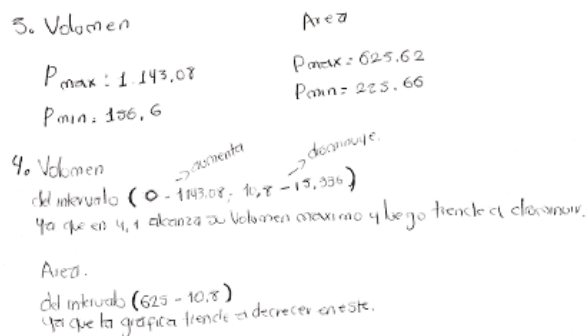 3. Volumen
Area
Pmax: 1.143,08
Pmax = 625.62
Pmin: 156,6
Pmin = 225.66
4. Volumen
→ aumenta
→ disminuye.
del intervalo (0 - 1143,08; 10,8 - 15,936)
ya que en 4,1 alcanza su Volumen maximo y luego tiende a disminuir.
Area.
del intervalo (625 - 10.8)
ya que la grafica tiende a decrecer en este.